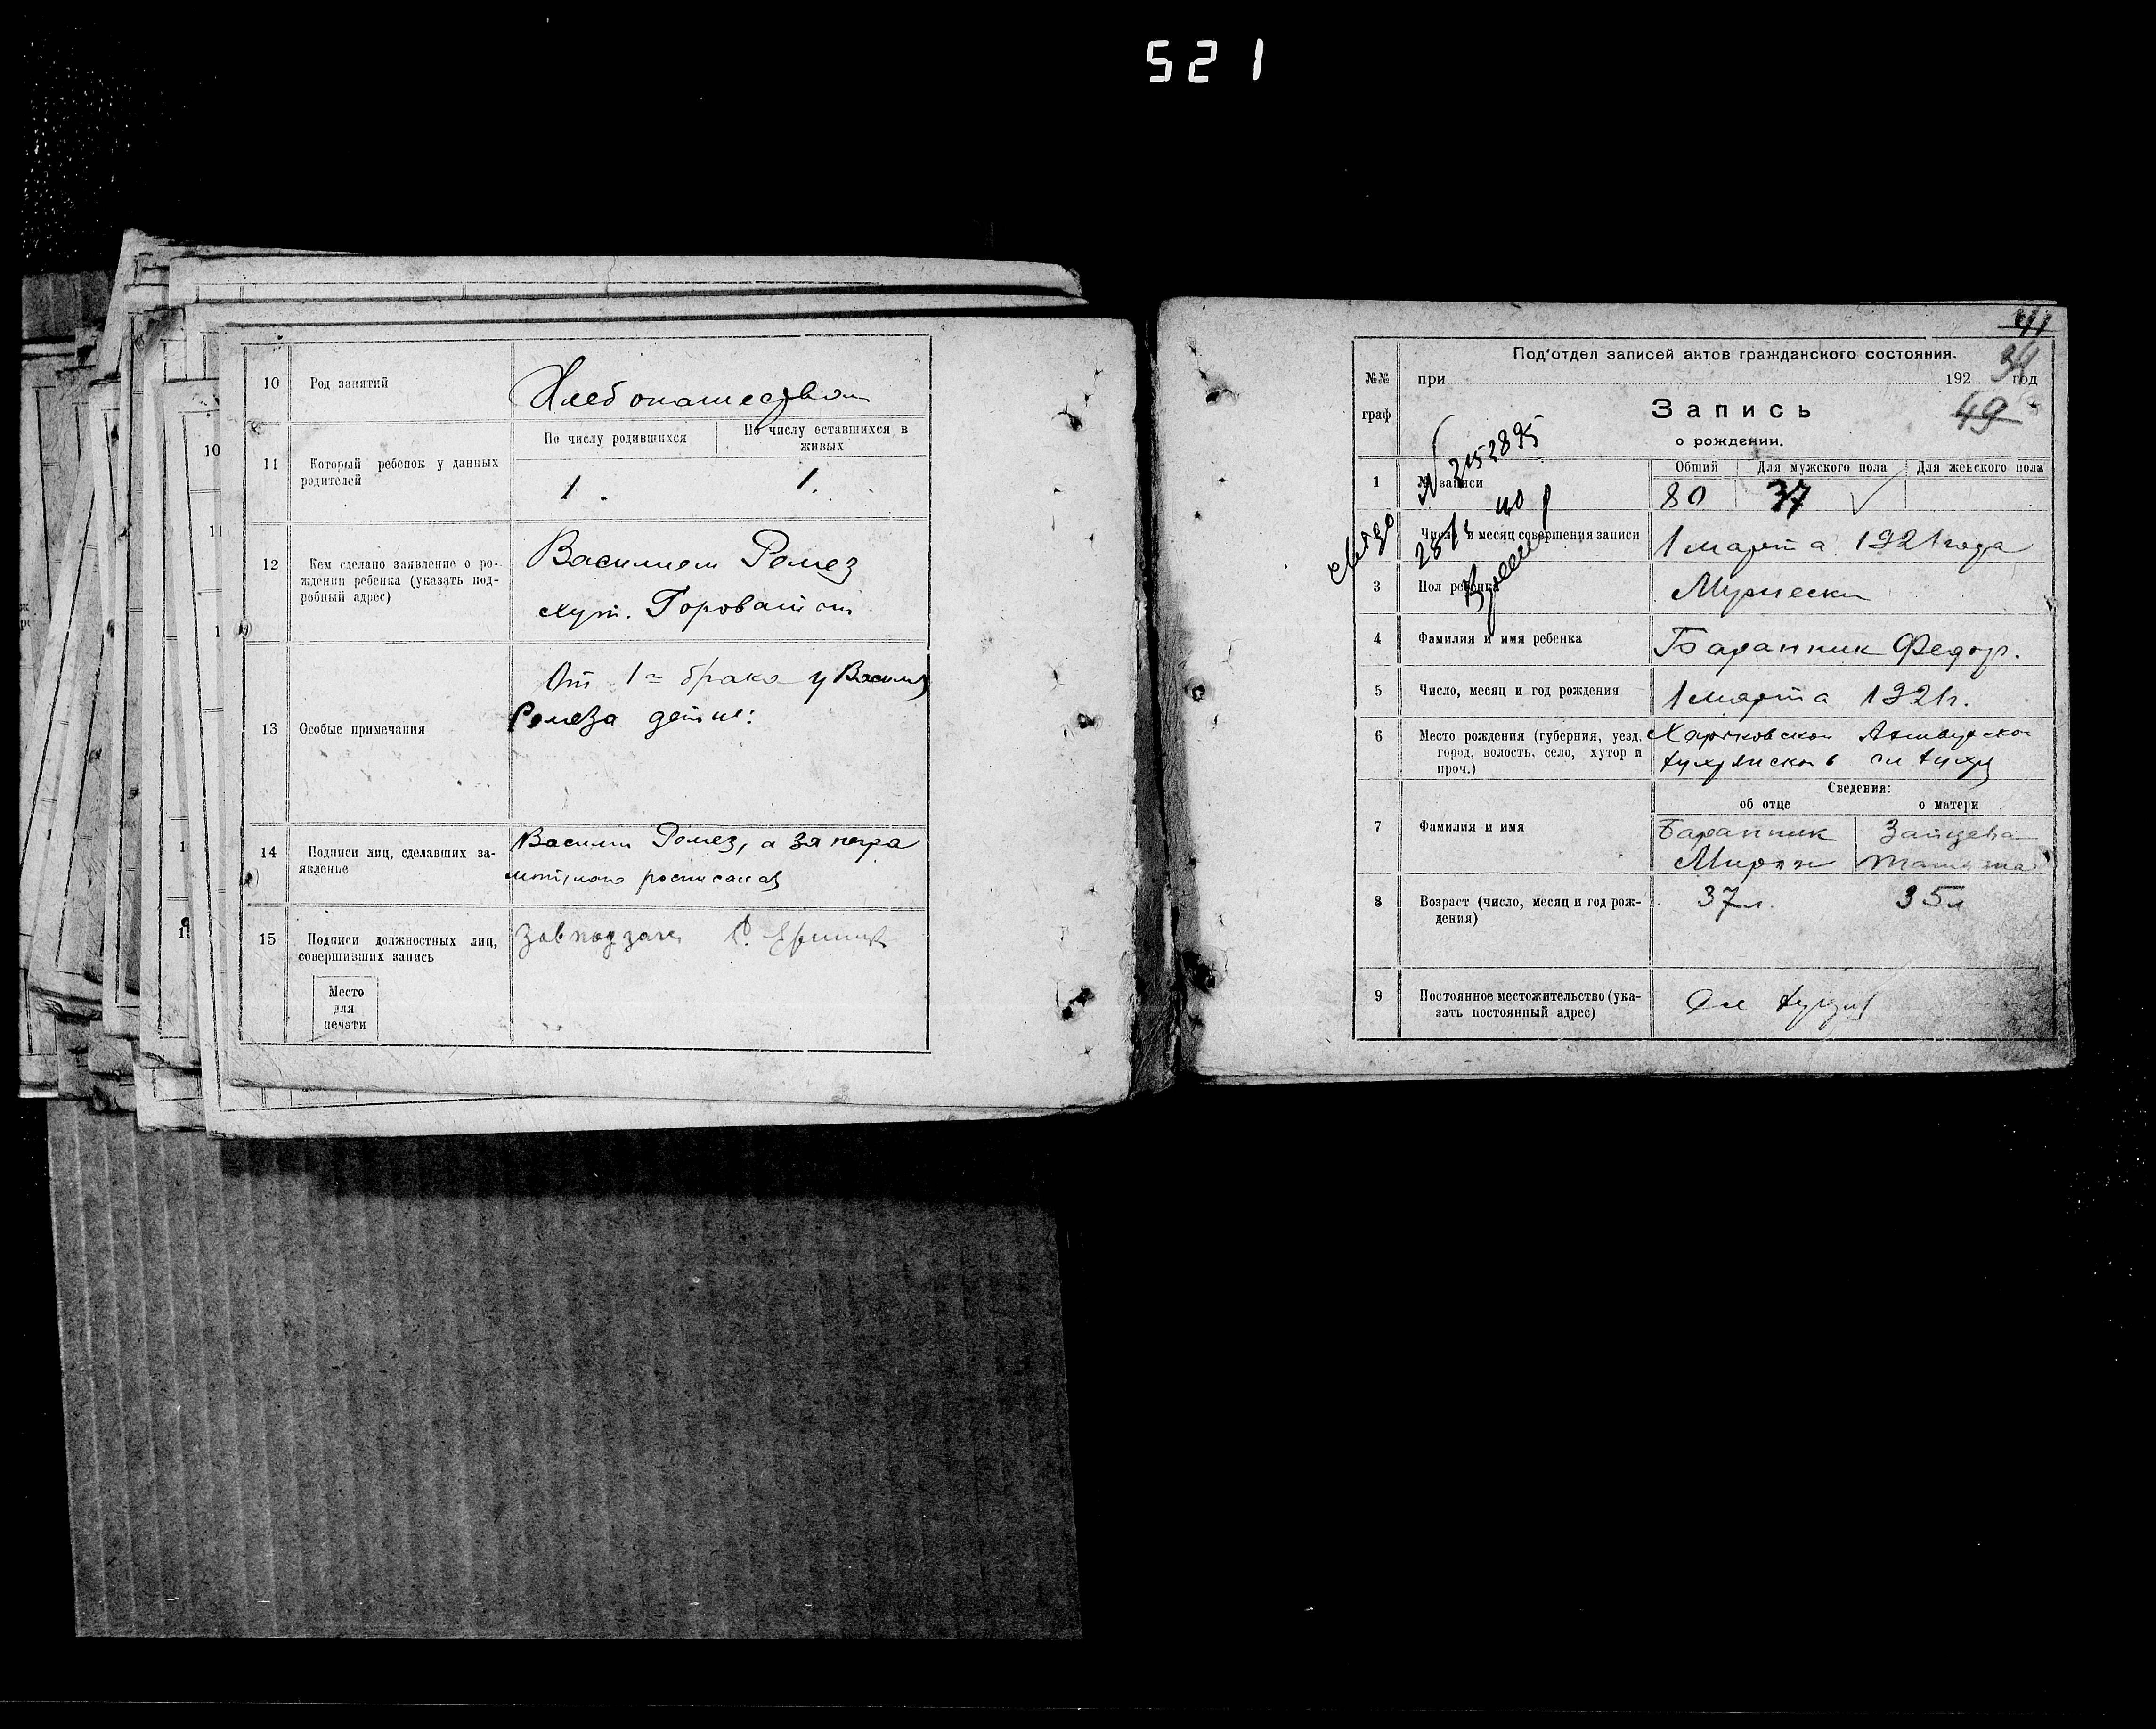 521
10 Род занятий
Хлебопашество
11 Который ребенок у данных
родителей
По числу родившихся
По числу оставшихся в
живых
1.
1.
12 Кем сделано заявление о ро-
ждении ребенка (указать под-
робный адрес)
Василием Ромез
хут.
13 Особые примечания
От 1 брака у Васил
Ромеза
14 Подписи лиц, сделавших за-
явление
Василий Ромез, а за негра
мотного росписалас
15 Подписи должностных лиц,
совершивших запись
Место
для
печати
41
Под'отдел записей актов гражданского состояния.
34
№№
граф
при 192 год
Запись
49
о рождении.
Общий Для мужского пола Для женского пола
1 № записи
80 37
2152895
Число и месяц совершения записи
1 марта 1921 года
3 Пол ребенка
Мужески
4 Фамилия и имя ребенка
Баранник Федор.
5 Число, месяц и год рождения
1 марта 1921г.
6 Место рождения (губерния, уезд,
город, волость, село, хутор и
проч.)
Харьковской
Сведения:
об отце о матери
7 Фамилия и имя
Баранник Зайцева
Мирон
8 Возраст (число, месяц и год рож-
дения)
37л. 35л
9 Постоянное местожительство (ука-
зать постоянный адрес)